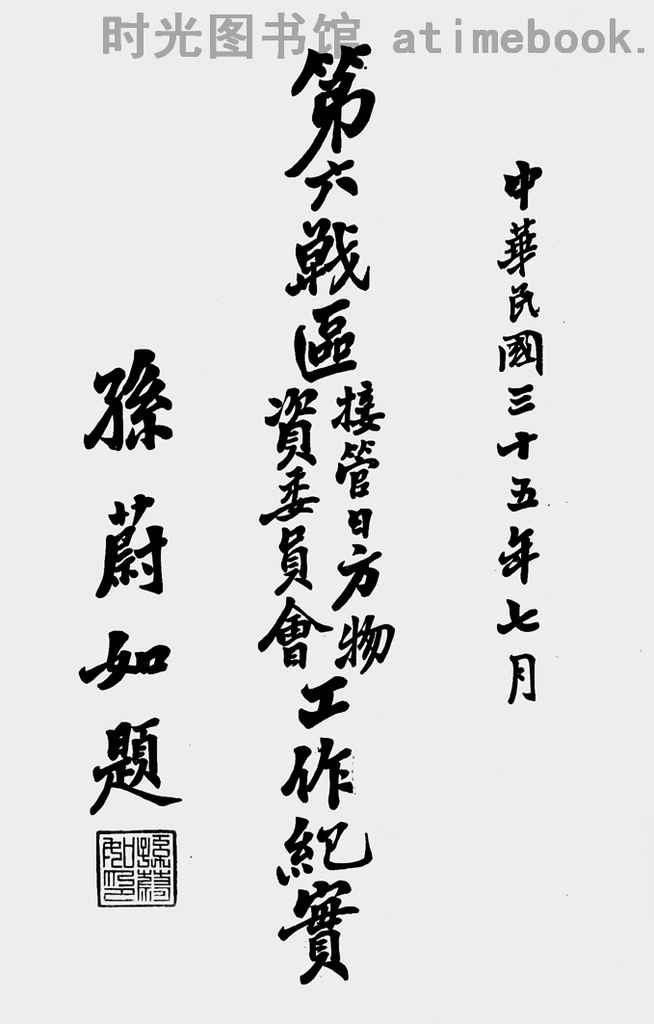 时光图书馆 atimebook.
中華民國三十五年七月
第六戰區
接管日方物
資委員會
工作紀實
孫蔚如題
孫蔚如印